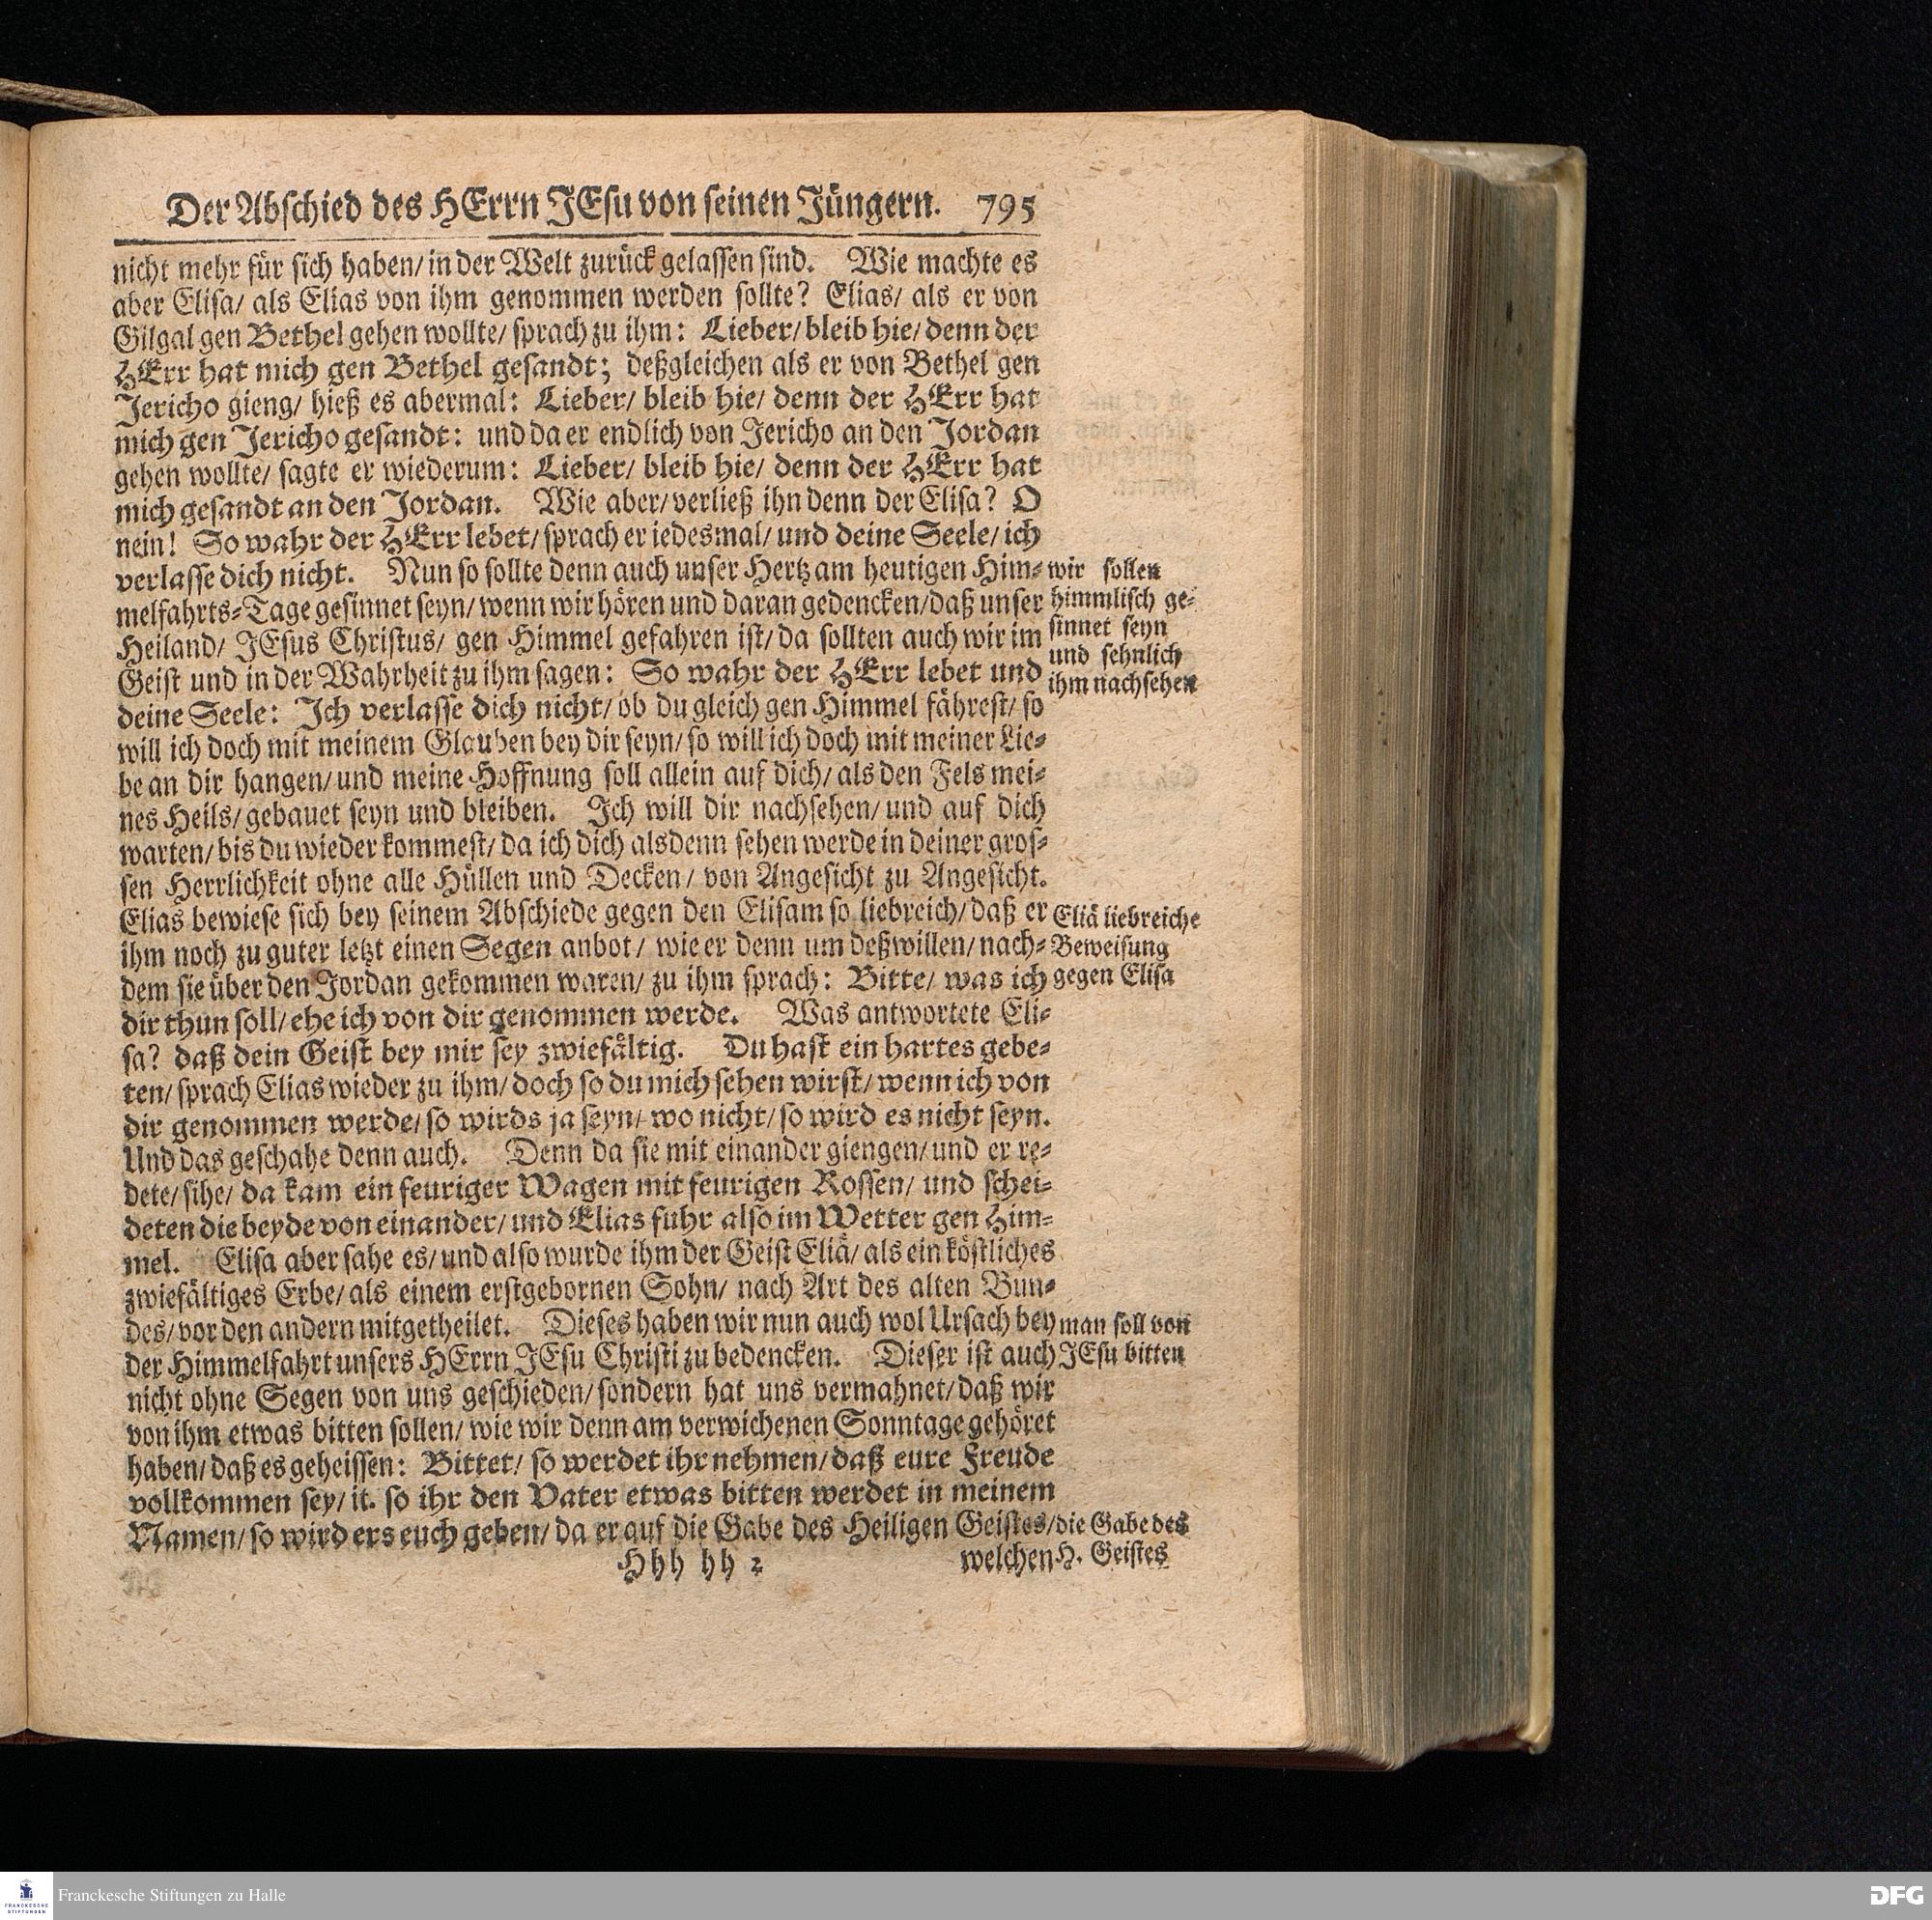 Der Abschied des HErrn JEsu von seinen Jüngern. 795
nicht mehr für sich haben/ in der Welt zurück gelassen sind. Wie machte es
aber Elisa/ als Elias von ihm genommen werden sollte? Elias/ als er von
Gilgal gen Bethel gehen wollte/ sprach zu ihm: Lieber/ bleib hie/ denn der
HErr hat mich gen Bethel gesandt; deßgleichen als er von Bethel gen
Jericho gieng/ hieß es abermal: Lieber/ bleib hie/ denn der HErr hat
mich gen Jericho gesandt: und da er endlich von Jericho an den Jordan
gehen wollte/ sagte er wiederum: Lieber/ bleib hie/ denn der HErr hat
mich gesandt an den Jordan. Wie aber/ verließ ihn denn der Elisa? O
nein! So wahr der HErr lebet/ sprach er iedesmal/ und deine Seele/ ich
verlasse dich nicht. Nun so sollte denn auch unser Hertz am heutigen Him-
melfahrts-Tage gesinnet seyn/ wenn wir hören und daran gedencken/ daß unser
Heiland/ JEsus Christus/ gen Himmel gefahren ist/ da sollten auch wir im
Geist und in der Wahrheit zu ihm sagen: So wahr der HErr lebet und
deine Seele: Ich verlasse dich nicht/ ob du gleich gen Himmel fährest/ so
will ich doch mit meinem Glauben bey dir seyn/ so will ich doch mit meiner Lie-
be an dir hangen/ und meine Hoffnung soll allein auf dich/ als den Fels mei-
nes Heils/ gebauet seyn und bleiben. Ich will dir nachsehen/ und auf dich
warten/ bis du wieder kommest/ da ich dich alsdenn sehen werde in deiner gros-
sen Herrlichkeit ohne alle Hüllen und Decken/ von Angesicht zu Angesicht.
Elias bewiese sich bey seinem Abschiede gegen den Elisam so liebreich/ daß er
ihm noch zu guter letzt einen Segen anbot/ wie er denn um deßwillen/ nach-
dem sie über den Jordan gekommen waren/ zu ihm sprach: Bitte/ was ich
dir thun soll/ ehe ich von dir genommen werde. Was antwortete Eli-
sa? daß dein Geist bey mir sey zwiefältig. Du hast ein hartes gebe-
ten/ sprach Elias wieder zu ihm/ doch so du mich sehen wirst/ wenn ich von
dir genommen werde/ so wirds ja seyn/ wo nicht/ so wird es nicht seyn.
Und das geschahe denn auch. Denn da sie mit einander giengen/ und er re-
dete/ sihe/ da kam ein feuriger Wagen mit feurigen Rossen/ und schei-
deten die beyde von einander/ und Elias fuhr also im Wetter gen Him-
mel. Elisa aber sahe es/ und also wurde ihm der Geist Eliä/ als ein köstliches
zwiefältiges Erbe/ als einem erstgebornen Sohn/ nach Art des alten Bun-
des/ vor den andern mitgetheilet. Dieses haben wir nun auch wol Ursach bey
der Himmelfahrt unsers HErrn JEsu Christi zu bedencken. Dieser ist auch
nicht ohne Segen von uns geschieden/ sondern hat uns vermahnet/ daß wir
von ihm etwas bitten sollen/ wie wir denn am verwichenen Sonntage gehöret
haben/ daß es geheissen: Bittet/ so werdet ihr nehmen/ daß eure Freude
vollkommen sey/ it. so ihr den Vater etwas bitten werdet in meinem
Namen/ so wird ers euch geben/ da er auf die Gabe des Heiligen Geistes/
Hhh hh 2 welchen
wir sollen
himmlisch ge-
sinnet seyn
und sehnlich
ihm nachsehen
Eliä liebreiche
Beweisung
gegen Elisa
man soll von
JEsu bitten
die Gabe des
H. Geistes
FRANCKESCHE
STIFTUNGEN
Franckesche Stiftungen zu Halle
DFG